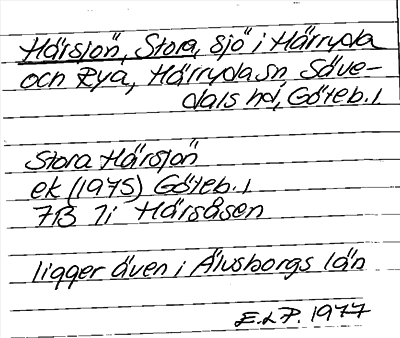 Härsjön, Stora, sjö i Härryda
och Rya, Härryda sn Säve-
dals hd, Göteb. l.
Stora Härsjön
ek (1975) Göteb. l
7B 7i Härsåsen
ligger även i Älvsborgs län
E.L.P. 1977